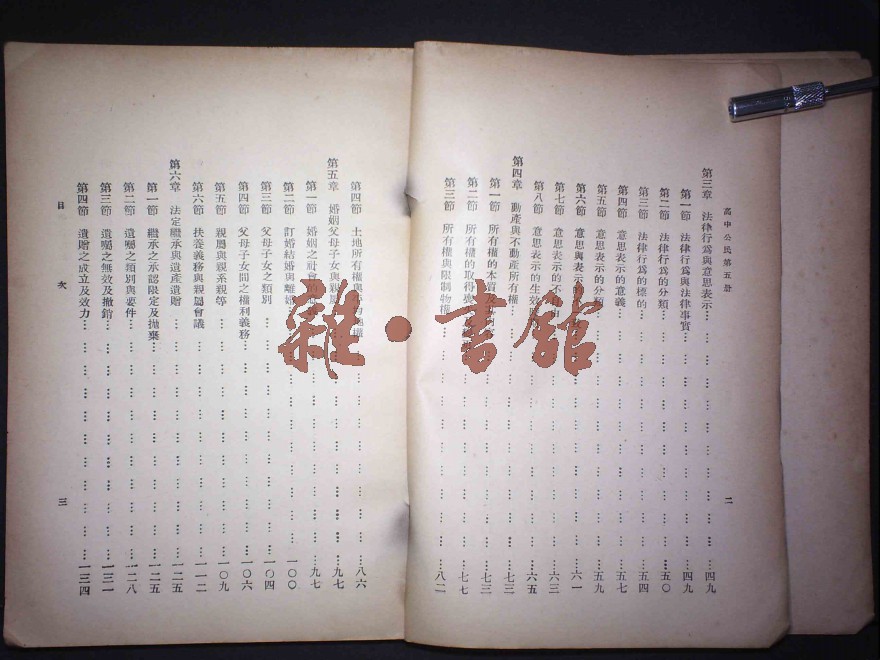 高中公民第五册
二
第三章 法律行爲與意思表示 四九
第一節 法律行爲與法律事實 四九
第二節 法律行爲的分類 五〇
第三節 法律行爲的標的 五四
第四節 意思表示的意義 五七
第五節 意思表示的分類 五九
第六節 意思與表示的 六一
第七節 意思表示的不自由 六三
第八節 意思表示的生效 六五
第四章 動產與不動產所有權 七三
第一節 所有權的本質 七三
第二節 所有權的取得 七七
第三節 所有權與限制物權 八二
第四節 土地所有權與 八六
第五章 婚姻父母子女與親屬 九七
第一節 婚姻之社會的 九七
第二節 訂婚結婚與離婚 一〇〇
第三節 父母子女之類別 一〇四
第四節 父母子女間之權利義務 一〇六
第五節 親屬與親系親等 一〇九
第六節 扶養義務與親屬會議 一一二
第六章 法定繼承與遺產遺贈 一二五
第一節 繼承之承認限定及拋棄 一二五
第二節 遺囑之類別與要件 一二八
第三節 遺囑之無效及撤銷 一三一
第四節 遺贈之成立及效力 一三四
目次
三
雜·書館